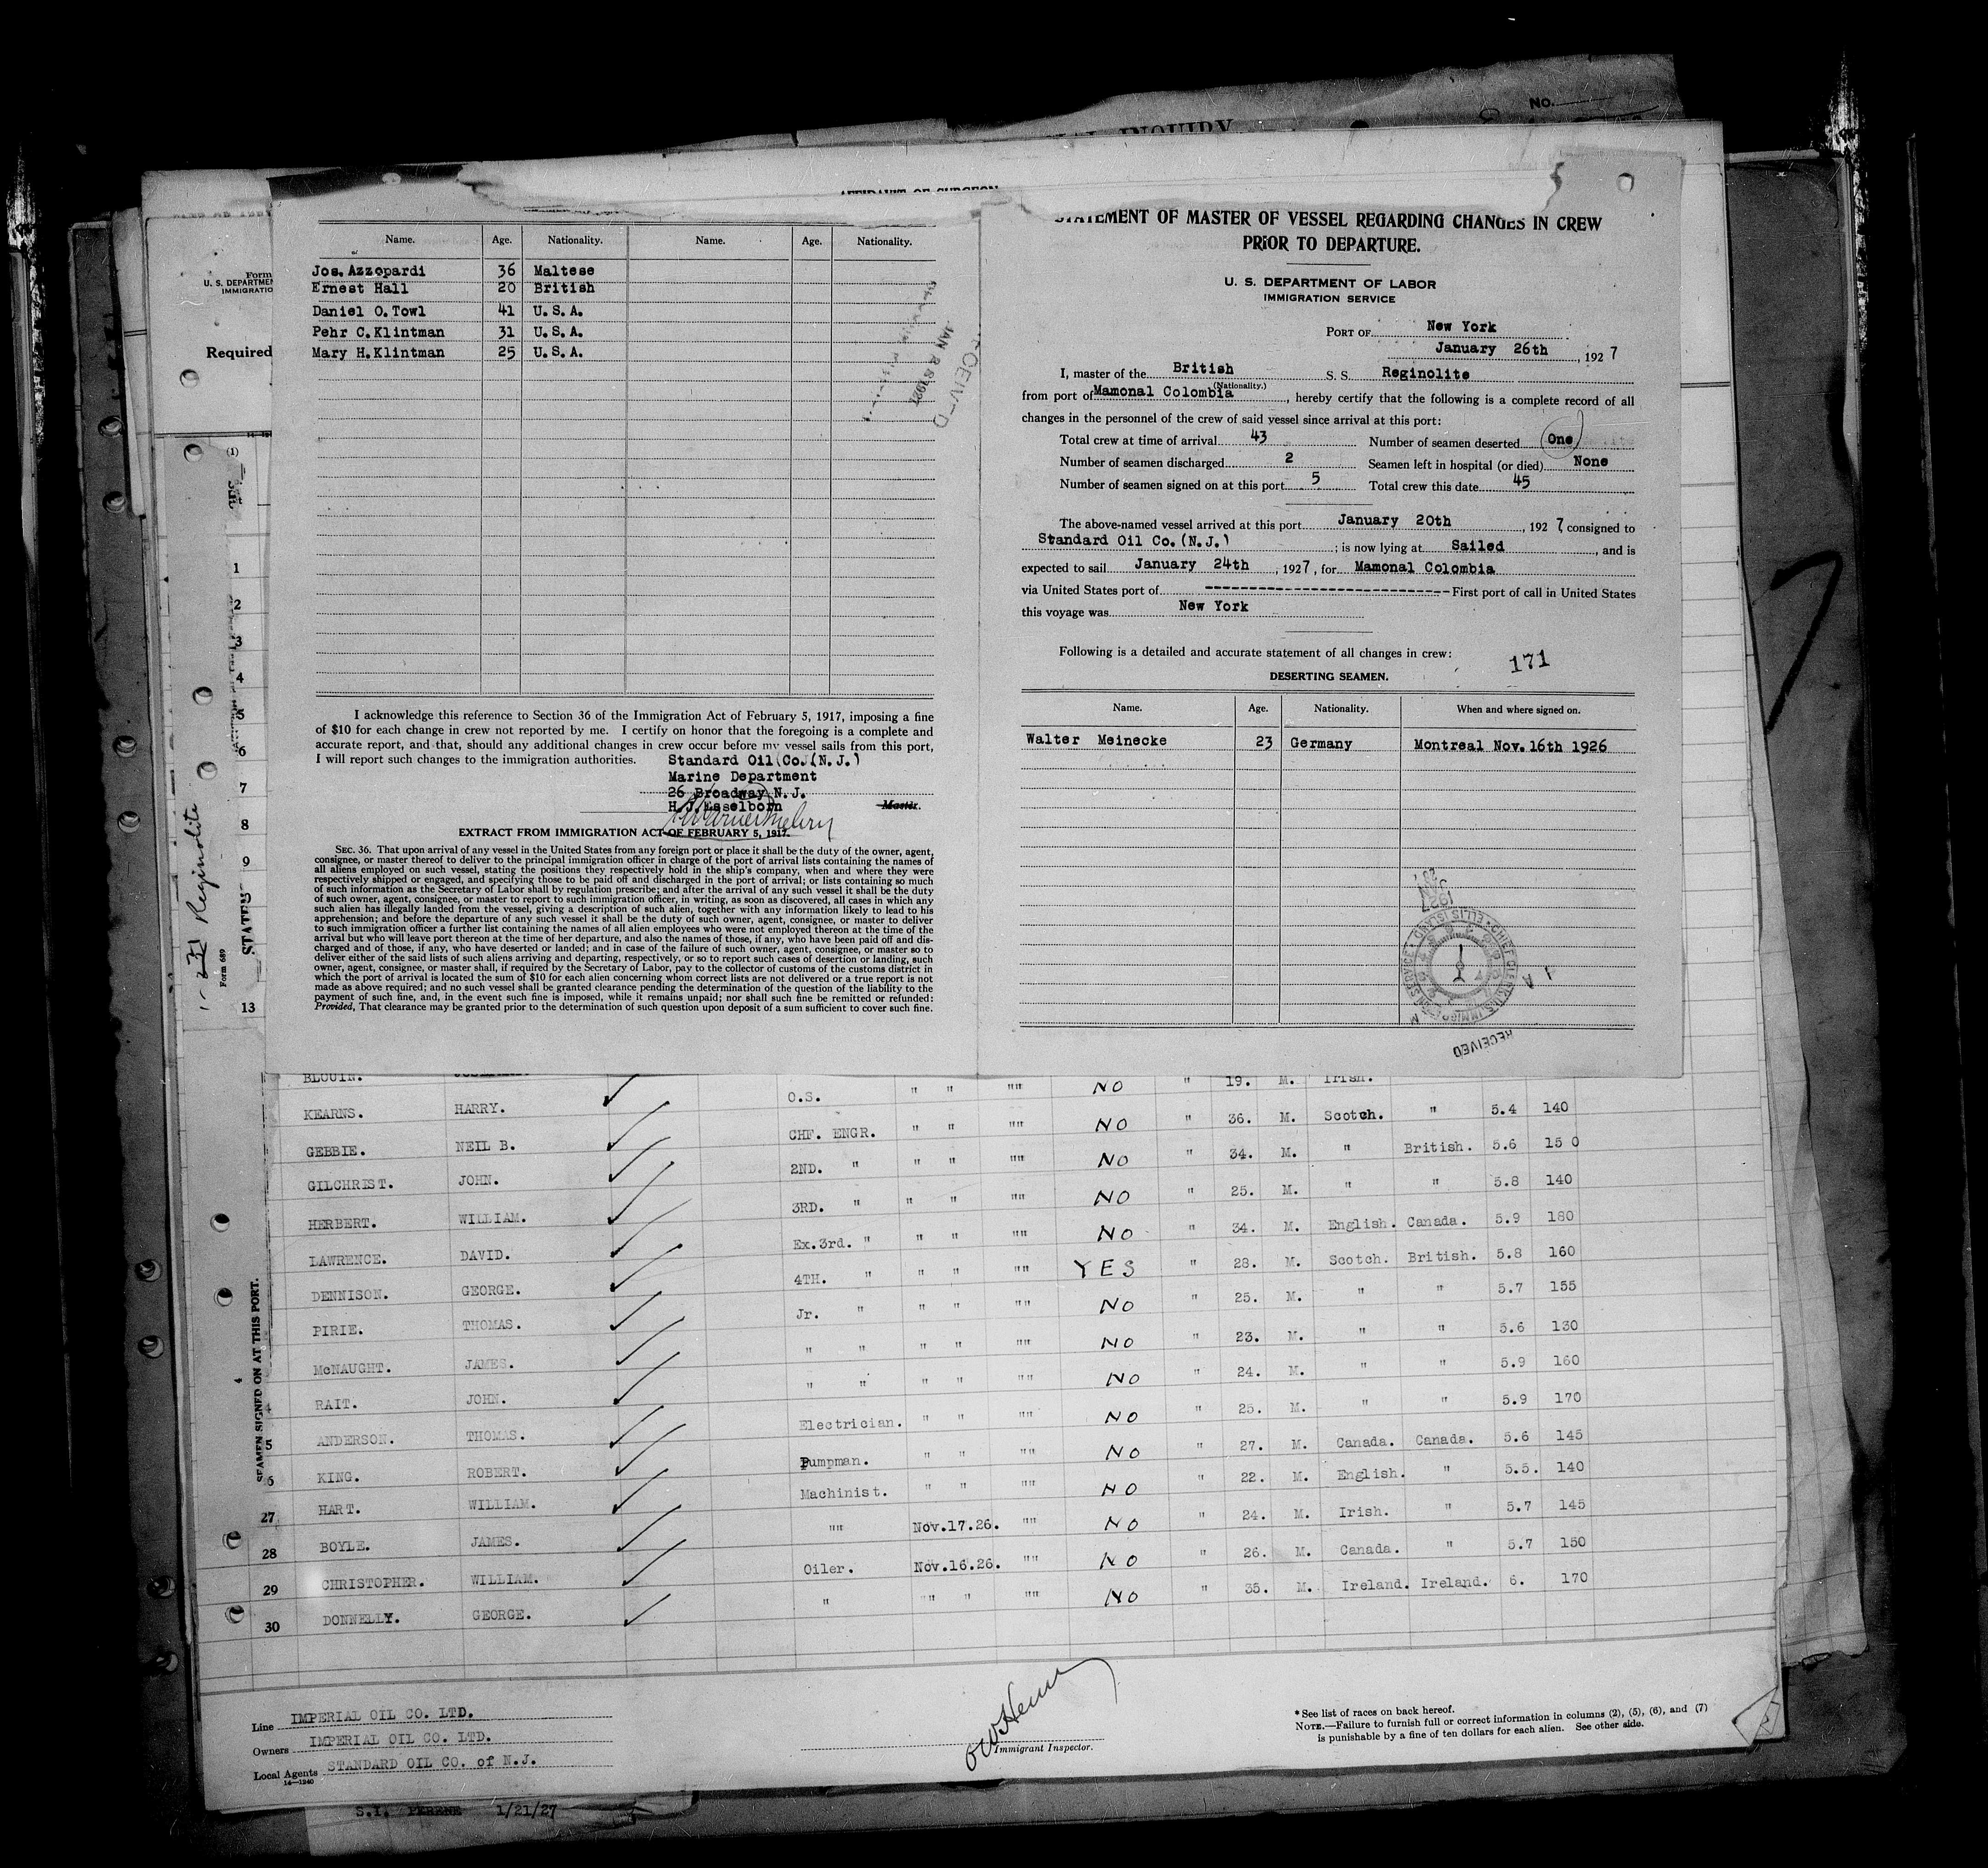 No.
AL INQUIRY
AFFIDAVIT OF SURGEON
Form
U. S. DEPARTMEN
IMMIGRATIO
Required
Name. Age. Nationality. Name. Age. Nationality.
Jos. Azzopardi 36 Maltese
Ernest Hall 20 British
Daniel O. Towl 41 U.S.A.
Pehr C. Klintman 31 U.S.A.
Mary H. Klintman 25 U.S.A.
JAN 28 1927
I acknowledge this reference to Section 36 of the Immigration Act of February 5, 1917, imposing a fine
of $10 for each change in crew not reported by me. I certify on honor that the foregoing is a complete and
accurate report, and that, should any additional changes in crew occur before my vessel sails from this port,
I will report such changes to the immigration authorities.
Standard Oil Co. (N.J.)
Marine Department
26 Broadway N.J.
H.J. Esselborn Master.
EXTRACT FROM IMMIGRATION ACT OF FEBRUARY 5, 1917.
SEC. 36. That upon arrival of any vessel in the United States from any foreign port or place it shall be the duty of the owner, agent,
consignee, or master thereof to deliver to the principal immigration officer in charge of the port of arrival lists containing the names of
all aliens employed on such vessel, stating the positions they respectively hold in the ship's company, when and where they were
respectively shipped or engaged, and specifying those to be paid off and discharged in the port of arrival; or lists containing so much
of such information as the Secretary of Labor shall by regulation prescribe; and after the arrival of any such vessel it shall be the duty
of such owner, agent, consignee, or master to report to such immigration officer, in writing, as soon as discovered, all cases in which any
such alien has illegally landed from the vessel, giving a description of such alien, together with any information likely to lead to his
apprehension; and before the departure of any such vessel it shall be the duty of such owner, agent, consignee, or master to deliver
to such immigration officer a further list containing the names of all alien employees who were not employed thereon at the time of the
arrival but who will leave port thereon at the time of her departure, and also the names of those, if any, who have been paid off and dis-
charged and of those, if any, who have deserted or landed; and in case of the failure of such owner, agent, consignee, or master so to
deliver either of the said lists of such aliens arriving and departing, respectively, or so to report such cases of desertion or landing, such
owner, agent, consignee, or master shall, if required by the Secretary of Labor, pay to the collector of customs of the customs district in
which the port of arrival is located the sum of $10 for each alien concerning whom correct lists are not delivered or a true report is not
made as above required; and no such vessel shall be granted clearance pending the determination of the question of the liability to the
payment of such fine, and, in the event such fine is imposed, while it remains unpaid; nor shall such fine be remitted or refunded:
Provided, That clearance may be granted prior to the determination of such question upon deposit of a sum sufficient to cover such fine.
STATEMENT OF MASTER OF VESSEL REGARDING CHANGES IN CREW
PRIOR TO DEPARTURE.
U. S. DEPARTMENT OF LABOR
IMMIGRATION SERVICE
PORT OF New York
January 26th, 1927
I, master of the British S. S. Reginolite
(Nationality.)
from port of Mamonal Colombia, hereby certify that the following is a complete record of all
changes in the personnel of the crew of said vessel since arrival at this port:
Total crew at time of arrival 43 Number of seamen deserted One
Number of seamen discharged 2 Seamen left in hospital (or died) None
Number of seamen signed on at this port 5 Total crew this date 45
The above-named vessel arrived at this port January 20th, 1927 consigned to
Standard Oil Co. (N.J.); is now lying at Sailed, and is
expected to sail January 24th, 1927, for Mamonal Colombia
via United States port of ---------- First port of call in United States
this voyage was New York
Following is a detailed and accurate statement of all changes in crew:
171
DESERTING SEAMEN.
Name. Age. Nationality. When and where signed on.
Walter Meinecke 23 Germany Montreal Nov. 16th 1926
RECEIVED
(1)
1
2
3
4
5
6
7
8
9
13
Reginolite
Form 689
STATEM
SEAMEN SIGNED ON AT THIS PORT.
BLOUIN. 19. M. Irish.
KEARNS. HARRY. O.S. " " "" NO " 36. M. Scotch. " 5.4 140
GEBBIE. NEIL B. CHF. ENGR. " " "" NO " 34. M. " British. 5.6 150
GILCHRIST. JOHN. 2ND. " " " "" NO " 25. M. " " 5.8 140
HERBERT. WILLIAM. 3RD. " " " "" NO " 34. M. English. Canada. 5.9 180
LAWRENCE. DAVID. Ex.3rd. " " " "" NO " 28. M. Scotch. British. 5.8 160
DENNISON. GEORGE. 4TH. " " " "" YES " 25. M. " " 5.7 155
PIRIE. THOMAS. Jr. " " " "" NO " 23. M. " " 5.6 130
McNAUGHT. JAMES. " " " " "" NO " 24. M. " " 5.9 160
RAIT. JOHN. " " " " "" NO " 25. M. " " 5.9 170
5 ANDERSON. THOMAS. Electrician. " " "" NO " 27. M. Canada. Canada. 5.6 145
6 KING. ROBERT. Pumpman. " " "" NO " 22. M. English. " 5.5. 140
27 HART. WILLIAM. Machinist. " " "" NO " 24. M. Irish. " 5.7 145
28 BOYLE. JAMES. "" Nov.17.26. "" NO " 26. M. Canada. " 5.7 150
29 CHRISTOPHER. WILLIAM. Oiler. Nov.16.26. "" NO " 35. M. Ireland. Ireland. 6. 170
30 DONNELLY. GEORGE. " "" " "" NO
Line IMPERIAL OIL CO. LTD.
Owners IMPERIAL OIL CO. LTD.
Local Agents STANDARD OIL CO. of N.J.
14—1240
Immigrant Inspector.
* See list of races on back hereof.
NOTE.—Failure to furnish full or correct information in columns (2), (5), (6), and (7)
is punishable by a fine of ten dollars for each alien. See other side.
S.I. PERENE 1/21/27